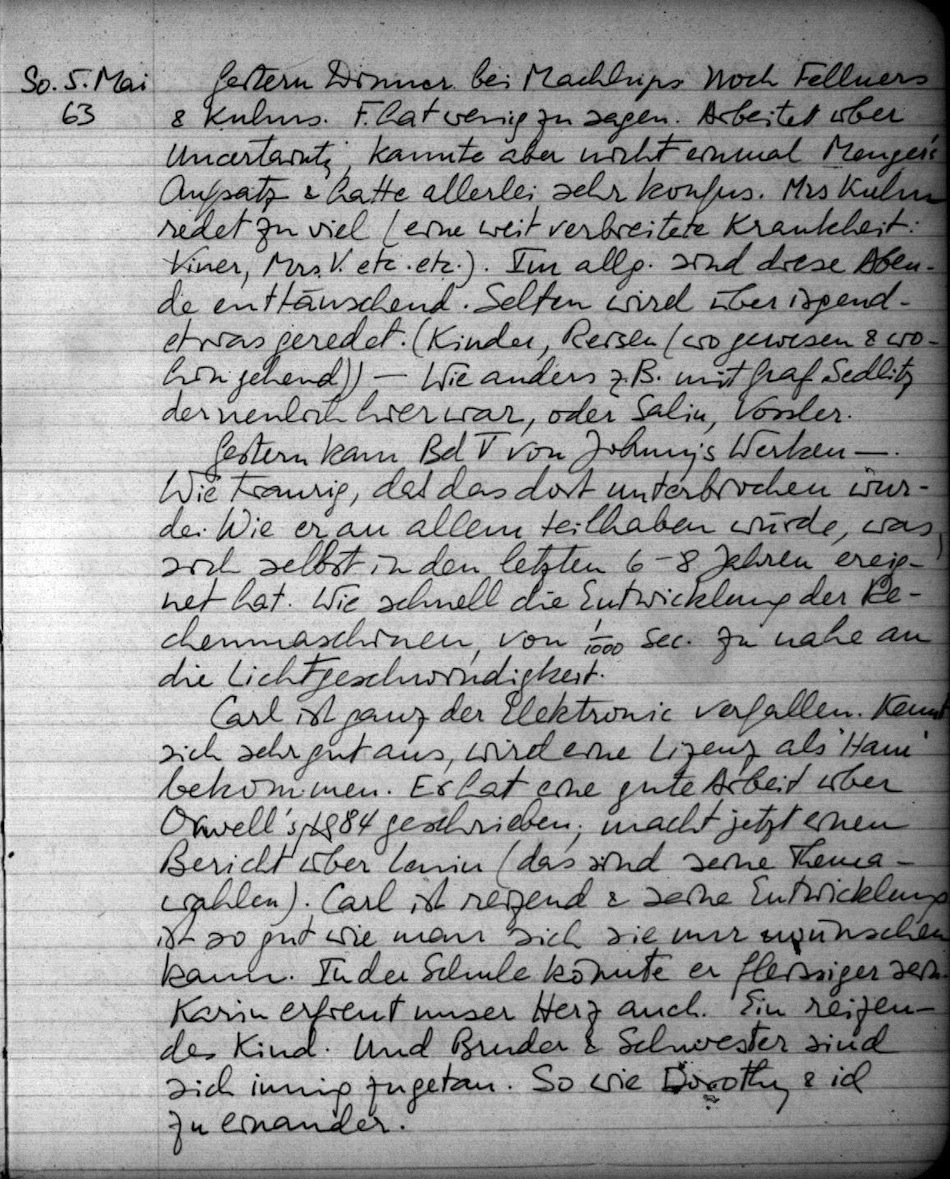 So. 5. Mai Gestern Dinner bei Machlups noch Fellners
63 & Kuhns. F. hat wenig zu sagen. Arbeitet über
Uncertainty, kannte aber nicht einmal Menger's
Aufsatz & hatte allerlei sehr konfus. Mrs Kuhn
redet zu viel (eine weit verbreitete Krankheit:
Viner, Mrs. V. etc. etc.). Im allg. sind diese Aben-
de enttäuschend. Selten wird über irgend-
etwas geredet. (Kinder, Reisen (wo gewesen & wo-
hin gehend)) — Wie anders z.B. mit Graf Sedlitz
der neulich hier war, oder Salin, Vossler.
Gestern kam Bd V von Johnny's Werken —.
Wie traurig, daß das dort unterbrochen wur-
de. Wie er an allem teilhaben würde, was
sich selbst in den letzten 6-8 Jahren ereig-
net hat. Wie schnell die Entwicklung der Re-
chenmaschinen, von 1/1000 Sec. zu nahe an
die Lichtgeschwindigkeit.
Carl ist ganz der Elektronic verfallen. Kennt
sich sehr gut aus, wird eine Lizenz als 'Ham'
bekommen. Er hat eine gute Arbeit über
Orwell's 1984 geschrieben; macht jetzt einen
Bericht über Lenin (das sind seine Thema-
wahlen). Carl ist reizend & seine Entwicklung
ist so gut wie man sich sie nur wünschen
kann. In der Schule könnte er fleissiger sein.
Karin erfreut unser Herz auch. Ein reizen-
des Kind. Und Bruder & Schwester sind
sich innig zugetan. So wie Dorothy & ich
zu einander.